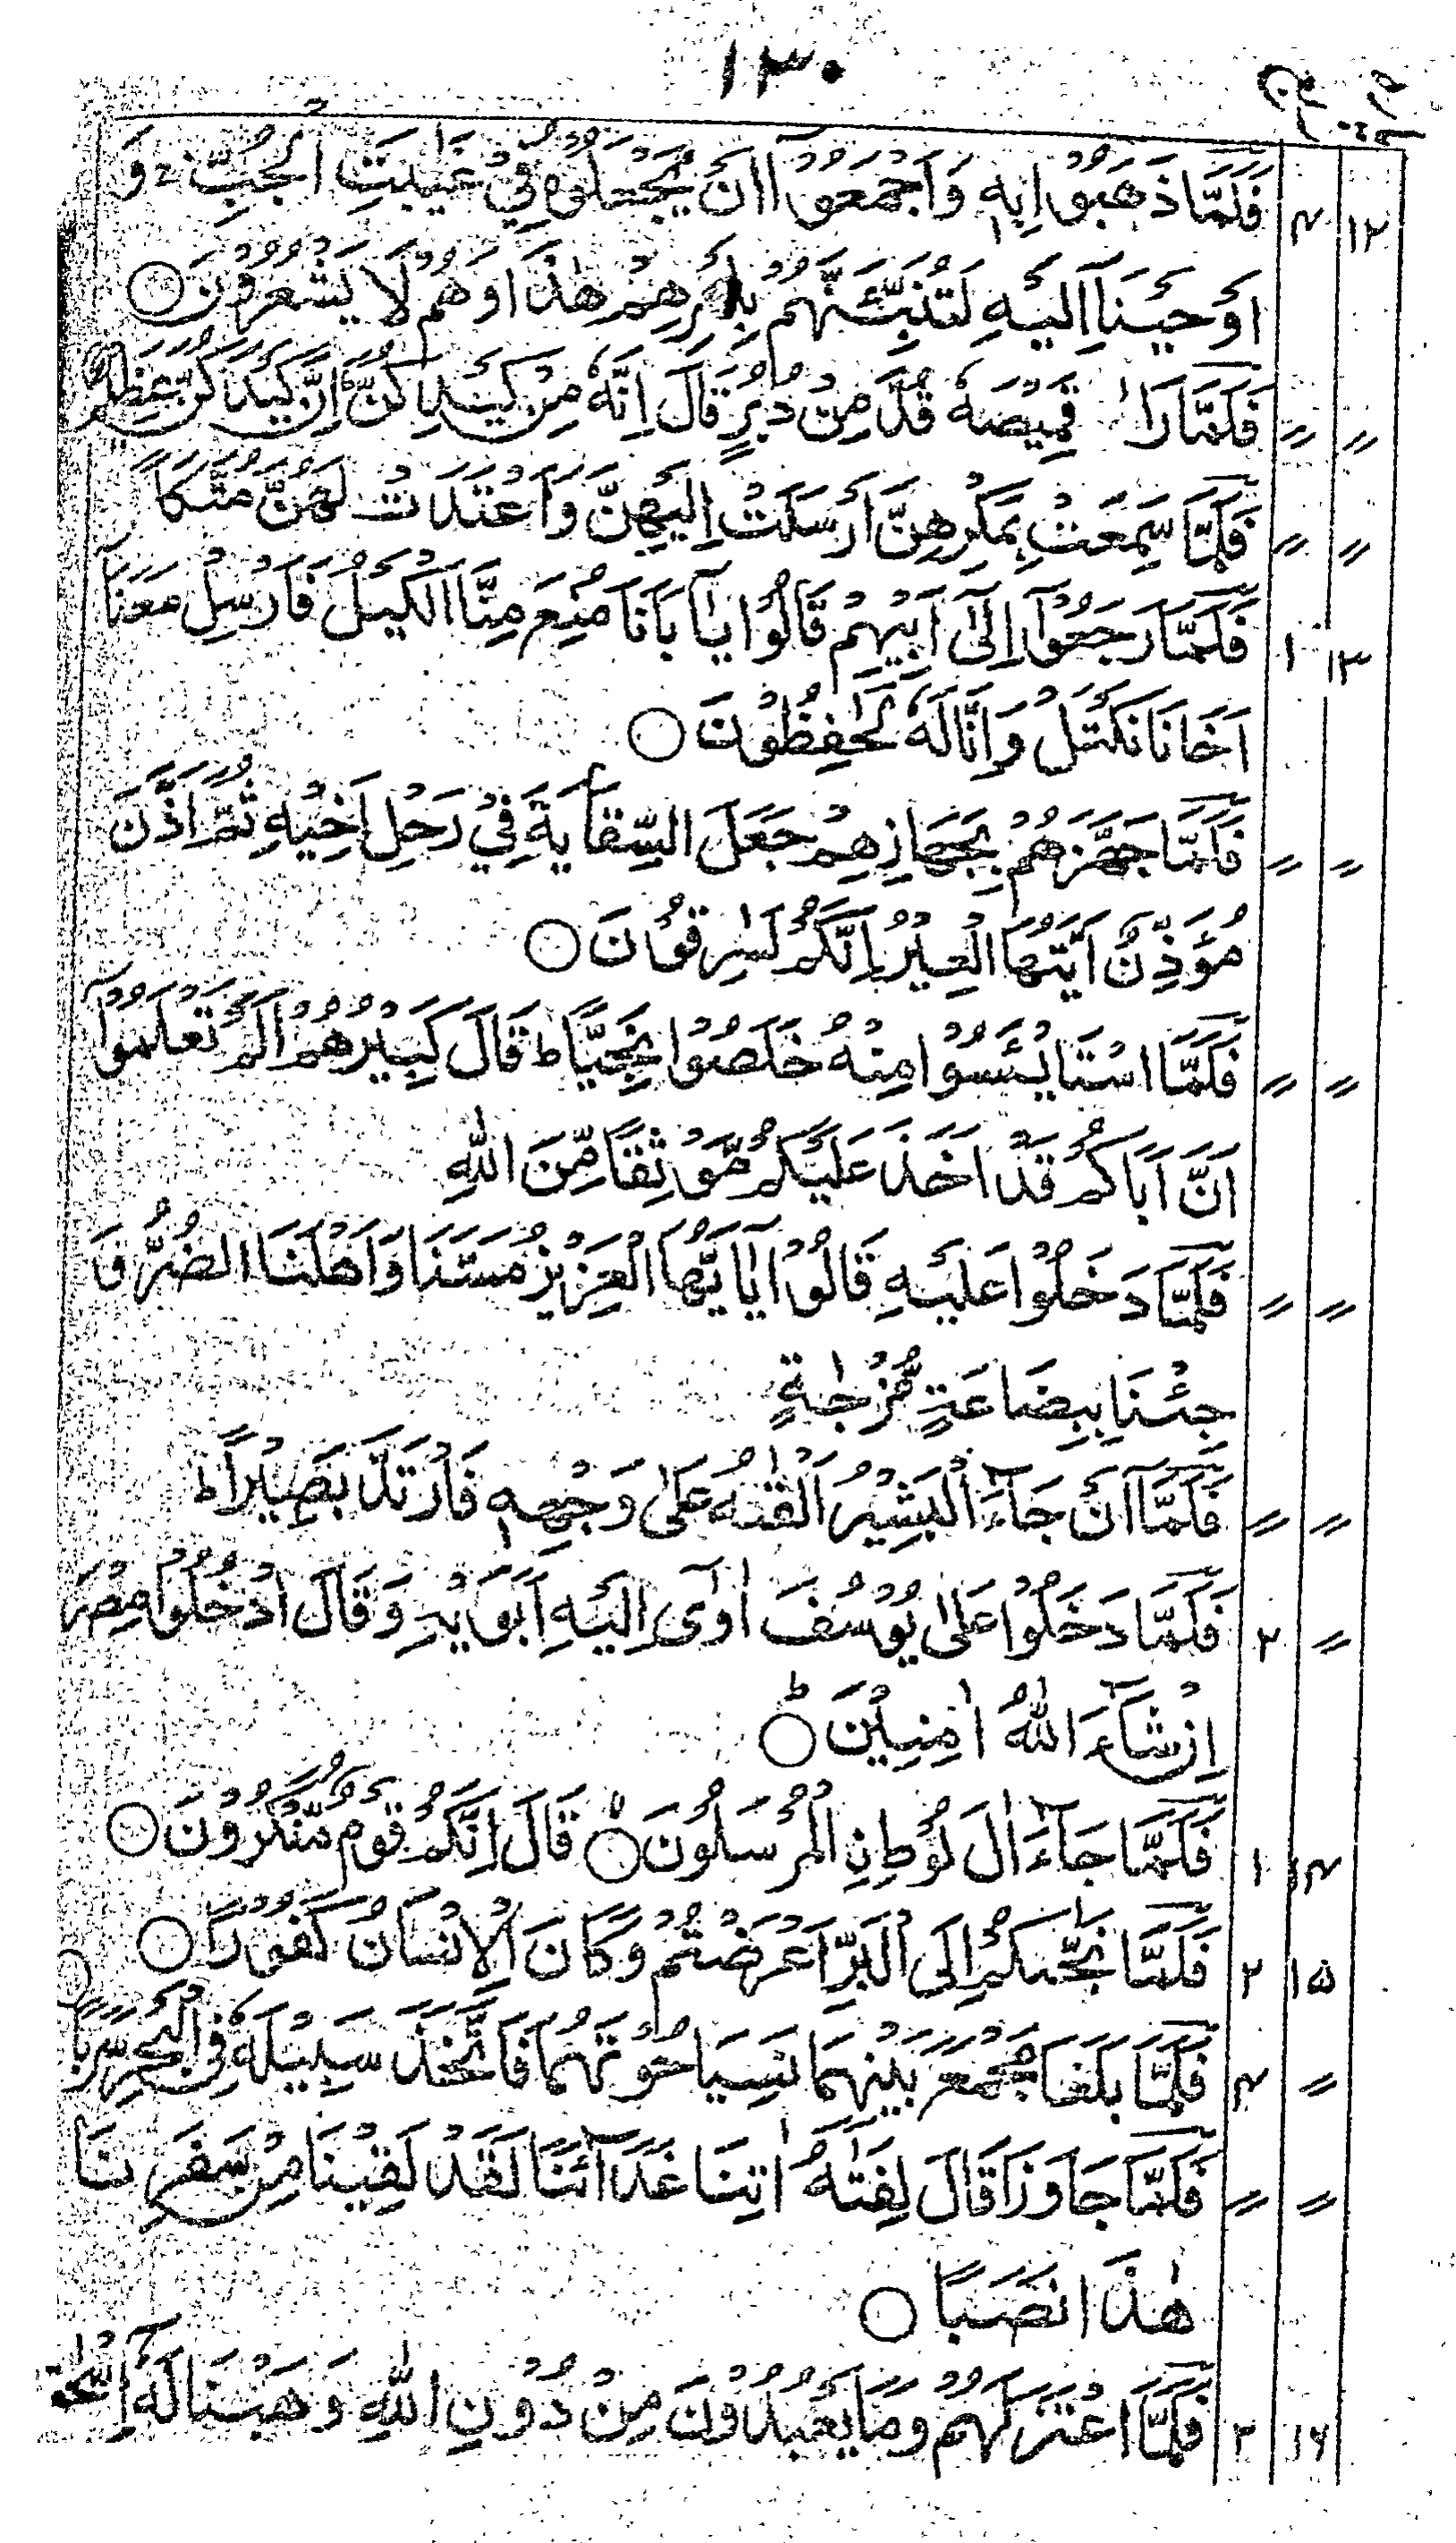 ۱۳۰
پارہ رکوع
۱۲ ۴ فَلَمَّا ذَهَبُوْا بِهٖ وَاَجْمَعُوْٓا اَنْ يَّجْعَلُوْهُ فِيْ غَيٰبَتِ الْجُبِّ ۚ وَ
اَوْحَيْنَآ اِلَيْهِ لَتُنَبِّئَنَّهُمْ بِاَمْرِهِمْ هٰذَا وَهُمْ لَا يَشْعُرُوْنَ ○
〃 〃 فَلَمَّا رَاٰ قَمِيْصَهٗ قُدَّ مِنْ دُبُرٍ قَالَ اِنَّهٗ مِنْ كَيْدِكُنَّ ؕ اِنَّ كَيْدَكُنَّ عَظِيْمٌ
〃 〃 فَلَمَّا سَمِعَتْ بِمَكْرِهِنَّ اَرْسَلَتْ اِلَيْهِنَّ وَاَعْتَدَتْ لَهُنَّ مُتَّكَاً
۱۳ ۱ فَلَمَّا رَجَعُوْٓا اِلٰٓى اَبِيْهِمْ قَالُوْا يٰٓاَبَانَا مُنِعَ مِنَّا الْكَيْلُ فَاَرْسِلْ مَعَنَا
اَخَانَا نَكْتَلْ وَاِنَّا لَهٗ لَحٰفِظُوْنَ ○
〃 〃 فَلَمَّا جَهَّزَهُمْ بِجَهَازِهِمْ جَعَلَ السِّقَايَةَ فِيْ رَحْلِ اَخِيْهِ ثُمَّ اَذَّنَ
مُؤَذِّنٌ اَيَّتُهَا الْعِيْرُ اِنَّكُمْ لَسٰرِقُوْنَ ○
〃 〃 فَلَمَّا اسْتَايْـَٔسُوْا مِنْهُ خَلَصُوْا نَجِيًّا ؕ قَالَ كَبِيْرُهُمْ اَلَمْ تَعْلَمُوْٓا
اَنَّ اَبَاكُمْ قَدْ اَخَذَ عَلَيْكُمْ مَّوْثِقًا مِّنَ اللّٰهِ
〃 〃 فَلَمَّا دَخَلُوْا عَلَيْهِ قَالُوْا يٰٓاَيُّهَا الْعَزِيْزُ مَسَّنَا وَاَهْلَنَا الضُّرُّ وَ
جِئْنَا بِبِضَاعَةٍ مُّزْجٰىةٍ
〃 〃 فَلَمَّآ اَنْ جَآءَ الْبَشِيْرُ اَلْقٰىهُ عَلٰى وَجْهِهٖ فَارْتَدَّ بَصِيْرًا ؕ
〃 ۲ فَلَمَّا دَخَلُوْا عَلٰى يُوْسُفَ اٰوٰٓى اِلَيْهِ اَبَوَيْهِ وَقَالَ ادْخُلُوْا مِصْرَ
اِنْ شَآءَ اللّٰهُ اٰمِنِيْنَ ؕ ○
۱۴ ۱ فَلَمَّا جَآءَ اٰلَ لُوْطِ ۨ الْمُرْسَلُوْنَ ○ قَالَ اِنَّكُمْ قَوْمٌ مُّنْكَرُوْنَ ○
۱۵ ۲ فَلَمَّا نَجّٰىكُمْ اِلَى الْبَرِّ اَعْرَضْتُمْ وَكَانَ الْاِنْسَانُ كَفُوْرًا ○
〃 ۴ فَلَمَّا بَلَغَا مَجْمَعَ بَيْنِهِمَا نَسِيَا حُوْتَهُمَا فَاتَّخَذَ سَبِيْلَهٗ فِى الْبَحْرِ سَرَبًا ○
〃 〃 فَلَمَّا جَاوَزَا قَالَ لِفَتٰىهُ اٰتِنَا غَدَآءَنَا لَقَدْ لَقِيْنَا مِنْ سَفَرِنَا
هٰذَا نَصَبًا ○
۱۶ ۳ فَلَمَّا اعْتَزَلَهُمْ وَمَا يَعْبُدُوْنَ مِنْ دُوْنِ اللّٰهِ وَهَبْنَا لَهٗٓ اِسْحٰقَ